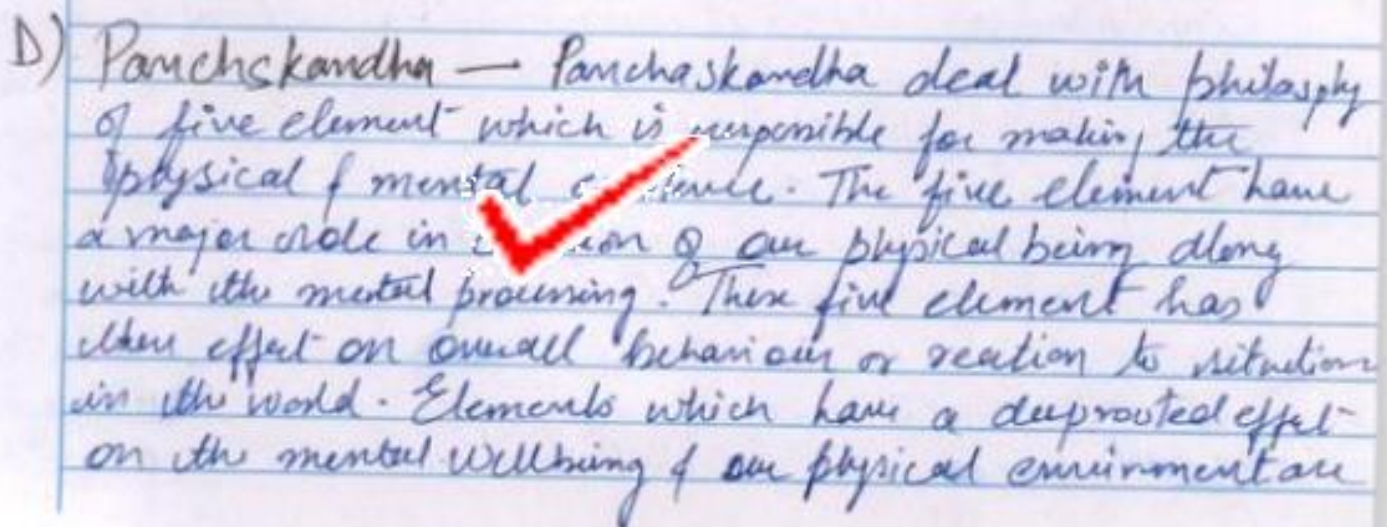 D) Panchskandha — Panchaskandha deal with philosphy
of five element which is responsible for making the
physical & mental. The five element have
a major role in of our physical being along
with the mental processing. These five element has
their effect on overall behaviour or reaction to situation
in the world. Elements which have a deeprooted effect
on the mental wellbeing & our physical envirnment are